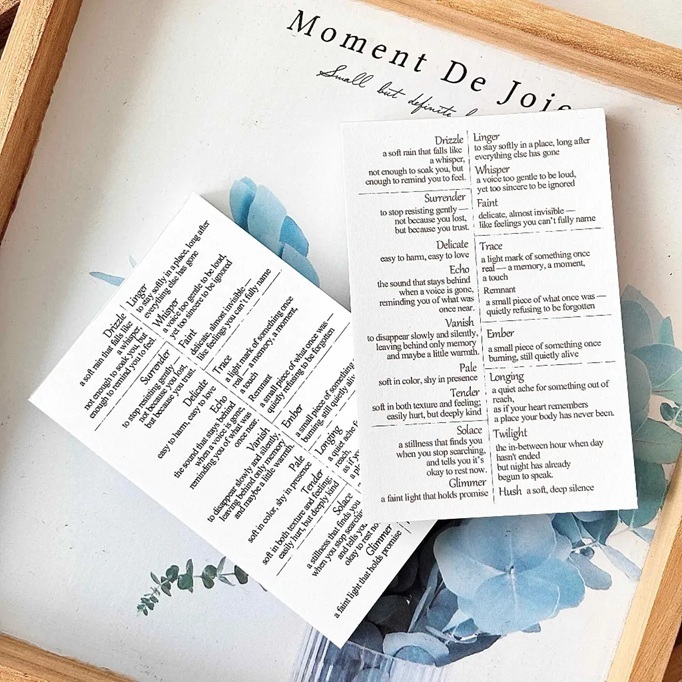 Moment De Joie
Small but definite
Drizzle
a soft rain that falls like
a whisper,
not enough to soak you, but
enough to remind you to feel.
Surrender
to stop resisting gently —
not because you lost,
but because you trust.
Delicate
easy to harm, easy to love
Echo
the sound that stays behind
when a voice is gone,
reminding you of what was
once near.
Vanish
to disappear slowly and silently,
leaving behind only memory
and maybe a little warmth.
Pale
soft in color, shy in presence
Tender
soft in both texture and feeling;
easily hurt, but deeply kind
Solace
a stillness that finds you
when you stop searching,
and tells you it's
okay to rest now.
Glimmer
a faint light that holds promise
Linger
to stay softly in a place, long after
everything else has gone
Whisper
a voice too gentle to be loud,
yet too sincere to be ignored
Faint
delicate, almost invisible —
like feelings you can't fully name
Trace
a light mark of something once
real — a memory, a moment,
a touch
Remnant
a small piece of what once was —
quietly refusing to be forgotten
Ember
a small piece of something once
burning, still quietly alive
Longing
a quiet ache for something out of
reach,
as if your heart remembers
a place your body has never been.
Twilight
the in-between hour when day
hasn't ended
but night has already
begun to speak.
Hush a soft, deep silence
Drizzle
a soft rain that falls like
a whisper,
not enough to soak you, but
enough to remind you to feel.
Surrender
to stop resisting gently —
not because you lost,
but because you trust.
Delicate
easy to harm, easy to love
Echo
the sound that stays behind
when a voice is gone,
reminding you of what was
once near.
Vanish
to disappear slowly and silently,
leaving behind only memory
and maybe a little warmth.
Pale
soft in color, shy in presence
Tender
soft in both texture and feeling;
easily hurt, but deeply kind
Solace
a stillness that finds you
when you stop searching,
and tells you
okay to rest no
Glimmer
a faint light that holds promise
Linger
to stay softly in a place, long after
everything else has gone
Whisper
a voice too gentle to be loud,
yet too sincere to be ignored
Faint
delicate, almost invisible —
like feelings you can't fully name
Trace
a light mark of something once
real — a memory, a moment,
a touch
Remnant
a small piece of what once was —
quietly refusing to be forgotten
Ember
a small piece of something
burning, still quietly alive
Longing
a quiet ache
reach,
as if